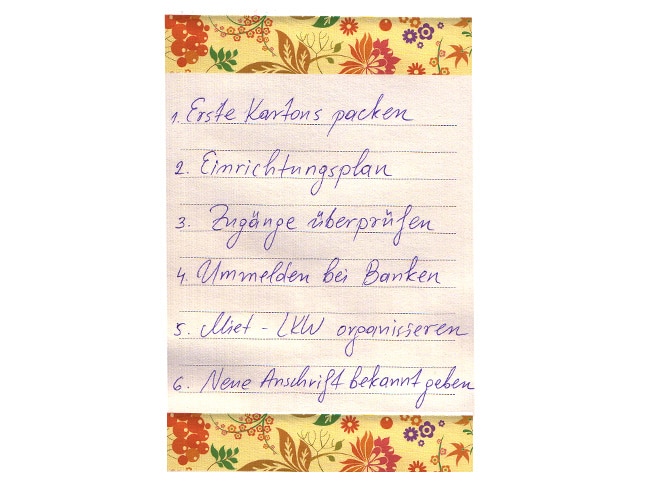 1. Erste Kartons packen
2. Einrichtungsplan
3. Zugänge überprüfen
4. Ummelden bei Banken
5. Miet - LKW organisieren
6. Neue Anschrift bekannt geben